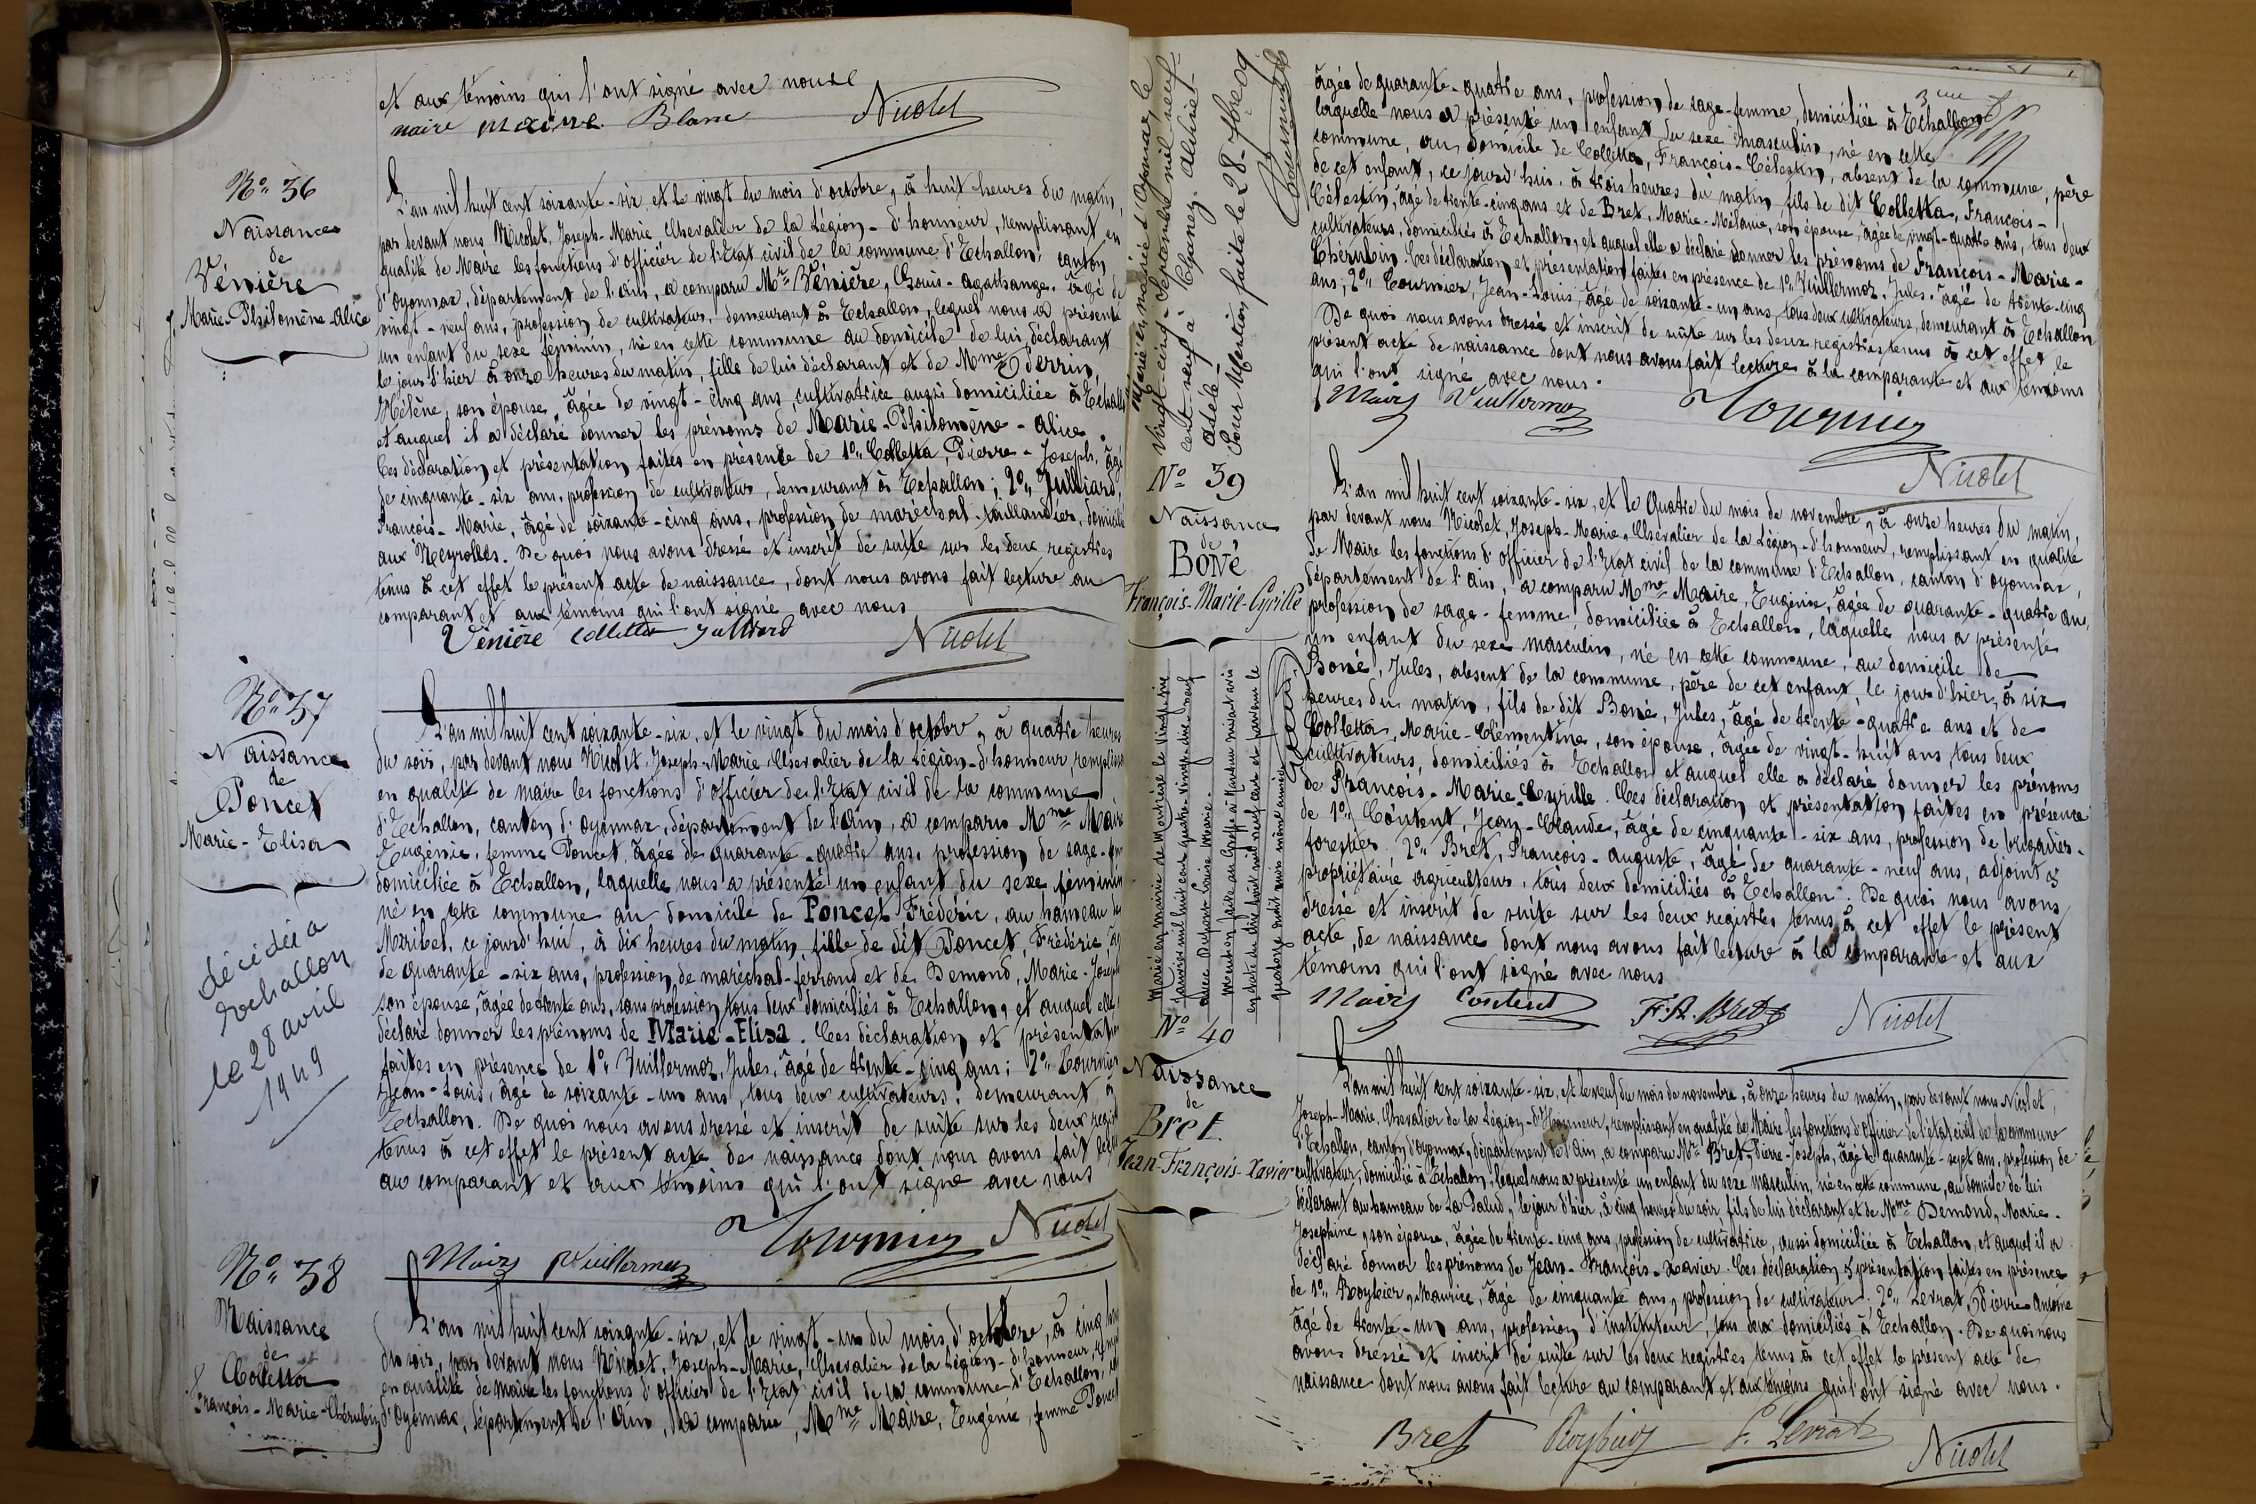 et aux témoins qui l'ont signé avec nous
maire Maire Blanc Nicolet
N° 36
Naissance
de
Vénière
Marie-Philomène-Alice
L'an mil huit cent soixante-six et le vingt du mois d'octobre, à huit heures du matin,
par devant nous Nicolet, Joseph-Marie Chevalier de la Légion-d'honneur, remplissant en
qualité de Maire les fonctions d'officier de l'Etat civil de la commune d'Echallon, canton
d'Oyonnax, département de l'Ain, a comparu Mr Vénière, Louis-Agathange, âgé de
vingt-neuf ans, profession de cultivateur, demeurant à Echallon, lequel nous a présenté
un enfant du sexe féminin, né en cette commune au domicile de lui déclarant
le jour d'hier à onze heures du matin, fille de lui déclarant et de Mme Perrin,
Hélène, son épouse, âgée de vingt-cinq ans, cultivatrice aussi domiciliée à Echallon
et auquel il a déclaré donner les prénoms de Marie-Philomène-Alice.
Ces déclaration et présentation faites en présence de 1° Colletta, Pierre-Joseph, âgé
de cinquante-six ans, profession de cultivateur, demeurant à Echallon; 2° Julliard,
François-Marie, âgé de soixante-cinq ans, profession de maréchal-taillandier, domicilié
aux Neyrolles. De quoi nous avons dressé et inscrit de suite sur les deux registres
tenus à cet effet le présent acte de naissance, dont nous avons fait lecture au
comparant et aux témoins qui l'ont signé avec nous
Vénière Colletta Julliard Nicolet
N° 37
Naissance
de
Poncet
Marie-Elisa
décédée a
Echallon
le 28 avril
1949
L'an mil huit cent soixante-six, et le vingt du mois d'octobre, à quatre heures
du soir, par devant nous Nicolet, Joseph-Marie Chevalier de la Légion-d'honneur, remplissant
en qualité de maire les fonctions d'officier de l'Etat civil de la commune
d'Echallon, canton d'Oyonnax, département de l'Ain, a comparu Mme Maire
Eugénie, femme Poncet, âgée de quarante-quatre ans, profession de sage-fem
domiciliée à Echallon, laquelle nous a présenté un enfant du sexe féminin
né en cette commune au domicile de Poncet Frédéric, au hameau de
Maribel, ce jourd'hui, à dix heures du matin, fille de dit Poncet, Frédéric âgé
de quarante-six ans, profession de maréchal-ferrand et de Demond, Marie-Joseph
son épouse, âgée de trente ans, sans profession tous deux domiciliés à Echallon, et auquel elle
déclaré donner les prénoms de Marie-Elisa. Ces déclaration et présentation
faites en présence de 1° Vuillermoz, Jules, âgé de trente-cinq ans; 2° Tournier
Jean-Louis, âgé de soixante-un ans, tous deux cultivateurs, demeurant à
Echallon. De quoi nous avons dressé et inscrit de suite sur les deux regist
tenus à cet effet le présent acte de naissance dont nous avons fait lectu
au comparant et aux témoins qui l'ont signé avec nous
Maire Vuillermoz Tournier Nicolet
N° 38
Naissance
de
Colletta
François-Marie-Chérubin
L'an mil huit cent soixante-six, et le vingt-un du mois d'octobre, à cinq heures
du soir, par devant nous Nicolet, Joseph-Marie, Chevalier de la Légion-d'honneur, rempl
en qualité de maire les fonctions d'officier de l'Etat civil de la commune d'Echallon,
d'Oyonnax, département de l'Ain, a comparu, Mme Maire, Eugénie, femme Poncet
âgée de quarante-quatre ans, profession de sage-femme, domiciliée à Echallon
laquelle nous a présenté un enfant du sexe masculin, né en cette
commune, au domicile de Colletta, François-Célestin, absent de la commune, père
de cet enfant, ce jourd'hui, à trois heures du matin, fils de dit Colletta, François-
Célestin, âgé de trente-cinq ans et de Bret, Marie-Mélanie, son épouse, âgée de vingt-quatre ans, tous deux
cultivateurs, domiciliés à Echallon, et auquel elle a déclaré donner les prénoms de François-Marie-
Chérubin. Ces déclaration et présentation faites en présence de 1° Vuillermoz, Jules, âgé de trente-cinq
ans, 2° Tournier, Jean-Louis, âgé de soixante-un ans, tous deux cultivateurs, demeurant à Echallon
De quoi nous avons dressé et inscrit de suite sur les deux registres tenus à cet effet le
présent acte de naissance dont nous avons fait lecture à la comparante et aux témoins
qui l'ont signé avec nous.
Maire Vuillermoz Tournier
Nicolet
3me
Marié en mairie d'Oyonnax, le
Vingt-cinq Septembre mil neuf-
cent-neuf à Chanez, Alphonsine-
Adèle-
Pour Mention faite le 28-7bre 09
N° 39
Naissance
de
Boné
François-Marie-Cyrille
Marié en mairie de Marthise le Vingt six
Janvier mil huit cent quatre-vingt-dix neuf
avec Dupont Louise Marie.
Mention faite au Greffe à Nantua suivant avis
en date du dix huit mil neuf cent et
quatorze dudit mois même année
L'an mil huit cent soixante-six, et le Quatre du mois de novembre, à onze heures du matin,
par devant nous Nicolet, Joseph-Marie-Chevalier de la Légion-d'honneur, remplissant en qualité
de Maire les fonctions d'officier de l'Etat civil de la commune d'Echallon, canton d'Oyonnax,
département de l'Ain, a comparu Mme Maire, Eugénie, âgée de quarante-quatre ans,
profession de sage-femme, domiciliée à Echallon, laquelle nous a présenté
un enfant du sexe masculin, né en cette commune, au domicile de
Boné, Jules, absent de la commune, père de cet enfant, le jour d'hier, à six
heures du matin, fils de dit Boné, Jules, âgé de trente-quatre ans et de
Colletta, Marie-Clémentine, son épouse, âgée de vingt-huit ans tous deux
cultivateurs, domiciliés à Echallon et auquel elle a déclaré donner les prénoms
de François-Marie-Cyrille. Ces déclaration et présentation faites en présence
de 1° Content, Jean-Claude, âgé de cinquante-six ans, profession de brigadier-
forestier. 2° Bret, François-Auguste, âgé de quarante-neuf ans, adjoint &
propriétaire agriculteur, tous deux domiciliés à Echallon. De quoi nous avons
dressé et inscrit de suite sur les deux registres tenus à cet effet le présent
acte, de naissance dont nous avons fait lecture à la comparante et aux
témoins qui l'ont signé avec nous
Maire Contend F.A. Bret Nicolet
N° 40
Naissance
de
Bret
Jean-François-Xavier
L'an mil huit cent soixante-six, et le neuf du mois de novembre, à onze heures du matin, par devant nous Nicolet,
Joseph-Marie, Chevalier de la Légion-d'Honneur, remplissant en qualité de Maire les fonctions d'officier de l'état civil de la commune
d'Echallon, canton d'Oyonnax, département de l'Ain, a comparu Mr Bret, Pierre-Joseph, âgé de quarante-sept ans, profession de
cultivateur, domicilié à Echallon, lequel nous a présenté un enfant du sexe masculin, né en cette commune, au domicile de lui
déclarant au hameau de La Palud, le jour d'hier, à cinq heures du soir, fils de lui déclarant et de Mme Demond, Marie-
Joséphine, son épouse, âgée de trente-cinq ans, profession de cultivatrice, aussi domiciliée à Echallon, et auquel il a
déclaré donner les prénoms de Jean-François-Xavier. Ces déclaration & présentation faites en présence
de 1° Roybier, Maurice, âgé de cinquante ans, profession de cultivateur. 2° Levrat, Pierre Antoine
âgé de trente-un ans, profession d'instituteur, tous deux domiciliés à Echallon. De quoi nous
avons dressé et inscrit de suite sur les deux registres tenus à cet effet le présent acte de
naissance dont nous avons fait lecture au comparant et aux témoins qui l'ont signé avec nous.
Bret Roybier P. Levrat Nicolet